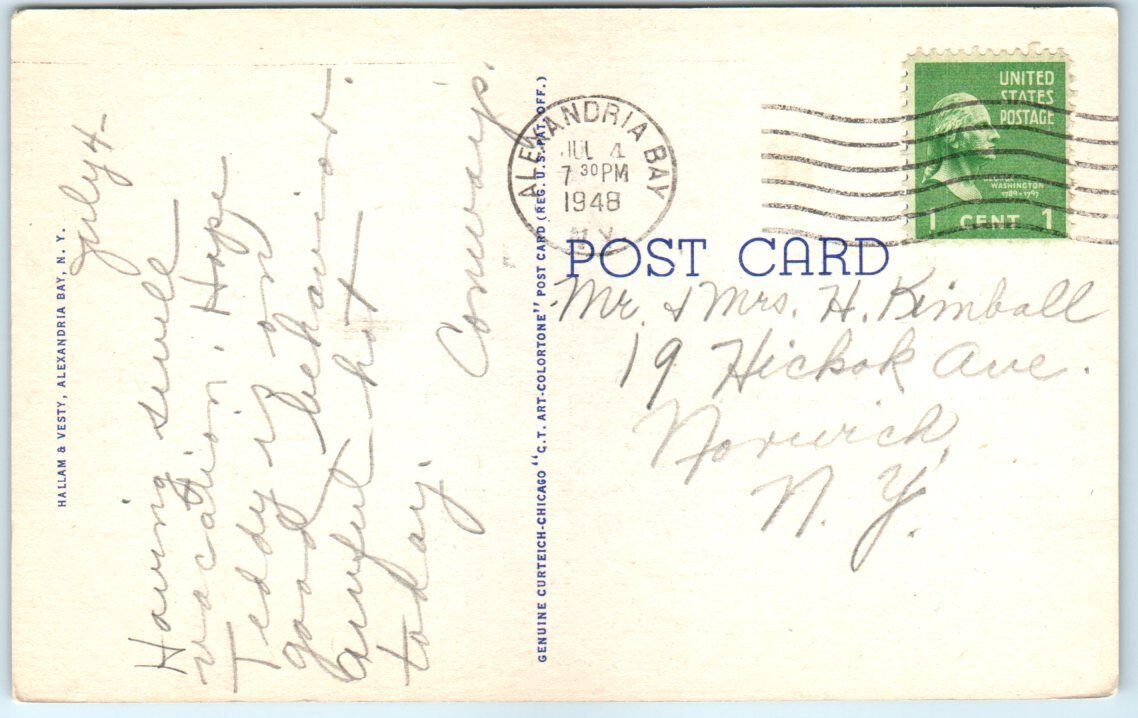 HALLAM & VESTY, ALEXANDRIA BAY, N. Y.
July 4-
Having swell
vacation. Hope
Teddy is on
good behavior.
Awful hot
today.
Conways.
GENUINE CURTEICH-CHICAGO "C.T. ART-COLORTONE" POST CARD (REG. U.S. PAT. OFF.)
ALEXANDRIA BAY
JUL 4
7 30 PM
1948
N.Y.
UNITED
STATES
POSTAGE
GEORGE
WASHINGTON
1789-1797
1 CENT 1
POST CARD
Mr. & Mrs. H. Kimball
19 Hickok Ave.
Norwich,
N. Y.